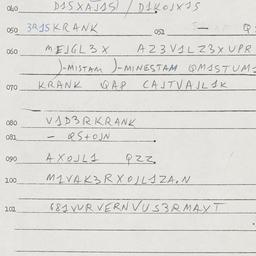 040 D15XAJ15 / D1KOJX15
050 3R15KRANK 052 — Q
060 MEJGL3X AZ3V1LZ3XUPR
)-MISTAM )-MINESTAM QM1STUM
070 KRANK QAP CAJTVAJL1K
080 V1D3RKRANK
081 — QS+OJN
090 AXOJL1 QZZ
100 M1VAK3RXOJL1ZA.N
101 681VVRVERNVUS3RMAYT